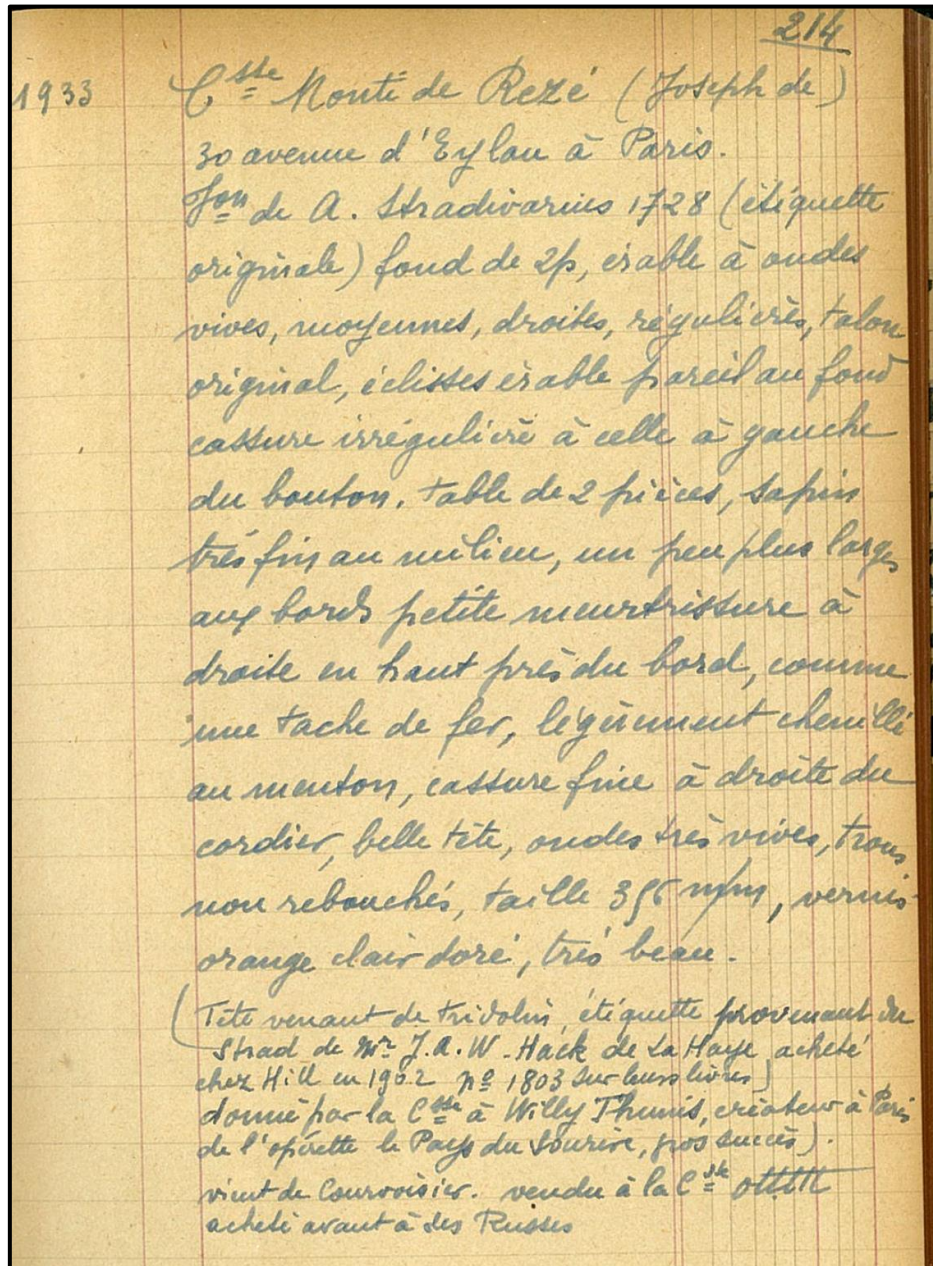 214
1933 Csse Monti de Rezé (Joseph de)
30 avenue d'Eylau à Paris.
Von de A. Stradivarius 1728 (étiquette
originale) fond de 2p, érable à ondes
vives, moyennes, droites, régulières, talon
original, éclisses érable pareil au fond
cassure irrégulière à celle à gauche
du bouton. table de 2 pièces, sapin
très fin au milieu, un peu plus large
aux bords petite meurtrissure à
droite en haut près du bord, comme
une tache de fer, légèrement chenillé
au menton, cassure fine à droite du
cordier, belle tête, ondes très vives, trous
non rebouchés, taille 356 m/m, vernis
orange clair doré, très beau.
(Tête venant de Fridolin, étiquette provenant du
Strad de Mr J.A.W. Hack de La Haye acheté
chez Hill en 1902 no 1803 sur leurs livres)
donné par la Csse à Willy Thunis, créateur à Paris
de l'opérette le Pays du Sourire, gros succès).
vient de Courvoisier. vendu à la Csse
acheté avant à des Russes